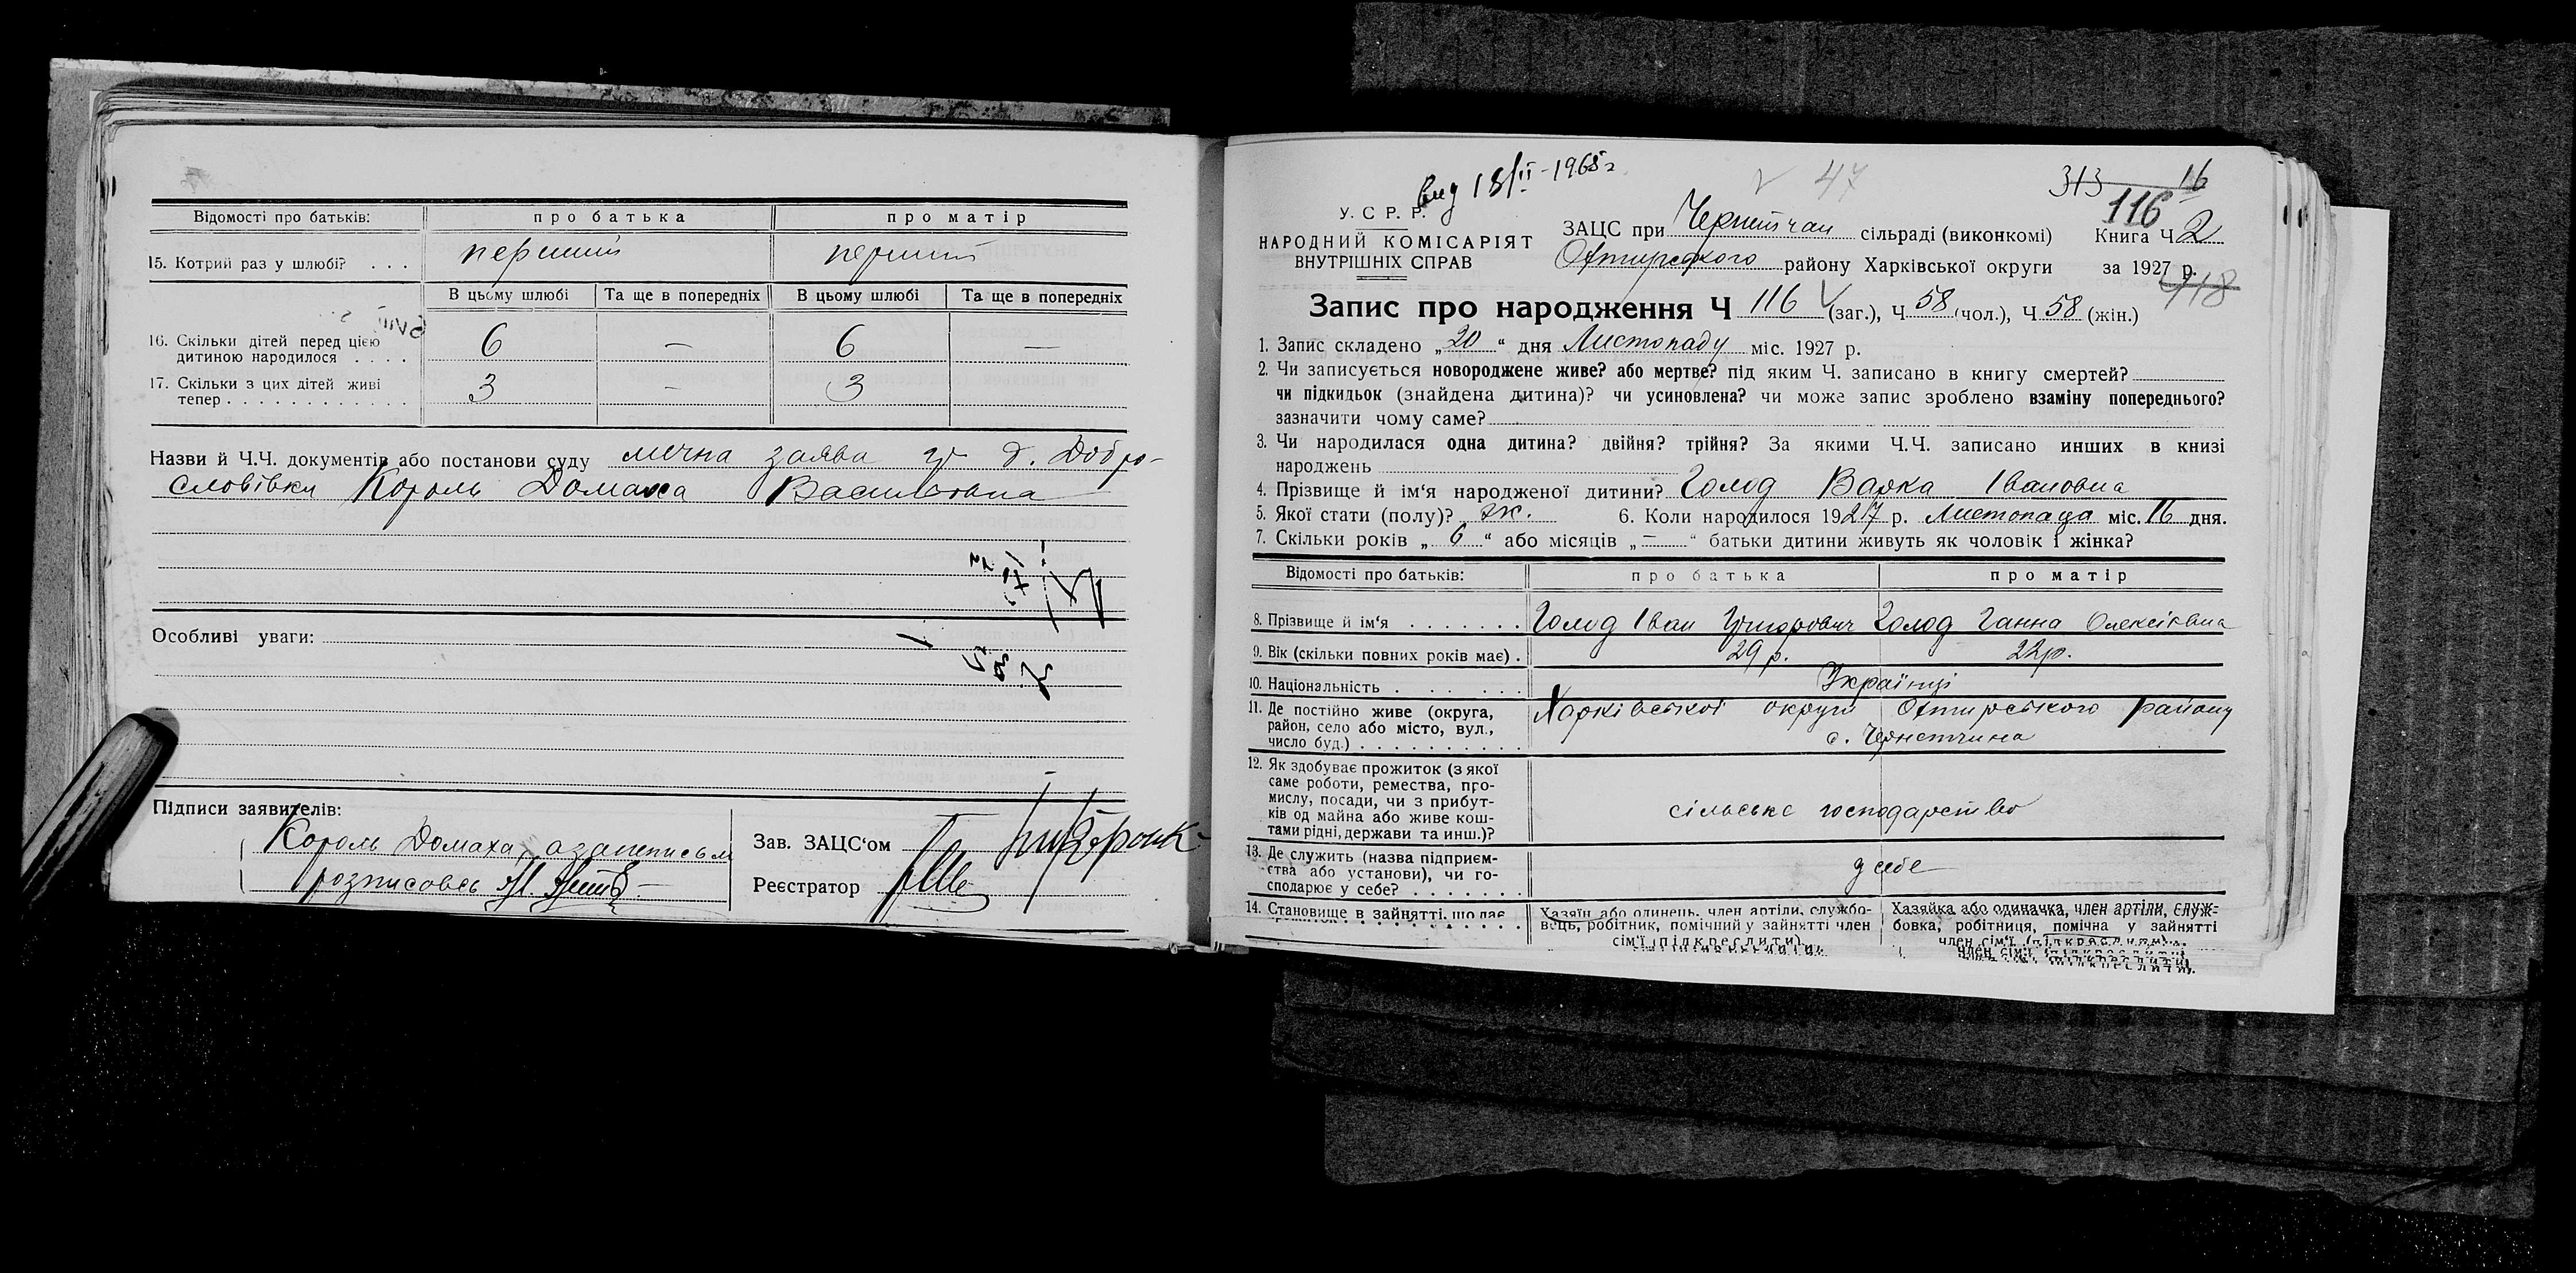 Відомості про батьків: про батька про матір
15. Котрий раз у шлюбі? . . . перший перший
В цьому шлюбі Та ще в попередніх В цьому шлюбі Та ще в попередніх
16. Скільки дітей перед цією
дитиною народилося . . . . 6 — 6 —
17. Скільки з цих дітей живі
тепер . . . . . . . . . . . . 3 — 3
Назви й Ч.Ч. документів або постанови суду заява Добро-
словівки Король Домаха Васильовна
Особливі уваги:
Підписи заявителів:
Король Домаха,
розписовсь
Зав. ЗАЦС'ом
Реєстратор
вид 18/II-1965 г
V 47
313 16
116
У. С. Р. Р.
НАРОДНИЙ КОМІСАРІЯТ
ВНУТРІШНІХ СПРАВ
ЗАЦС при Чернетчан сільраді (виконкомі) Книга Ч 2
Охтирського району Харківської округи за 1927 р.
118
Запис про народження Ч 116 V (заг.), Ч 58 (чол.), Ч 58 (жін.)
1. Запис складено „20“ дня Листопаду міс. 1927 р.
2. Чи записується новороджене живе? або мертве? під яким Ч. записано в книгу смертей?
чи підкидьок (знайдена дитина)? чи усиновлена? чи може запис зроблено взаміну попереднього?
зазначити чому саме?
3. Чи народилася одна дитина? двійня? трійня? За якими Ч.Ч. записано инших в книзі
народжень
4. Прізвище й ім'я народженої дитини? Голод Варка Івановна
5. Якої стати (полу)? ж. 6. Коли народилося 1927 р. Листопада міс. 16 дня.
7. Скільки років „6“ або місяців „—“ батьки дитини живуть як чоловік і жінка?
Відомості про батьків: про батька про матір
8. Прізвище й ім'я . . . . . . . Голод Іван Григорович Голод Ганна Олексіївна
9. Вік (скільки повних років має) . 29 р. 22 р.
10. Національність . . . . . . . Українці
11. Де постійно живе (округа,
район, село або місто, вул.,
число буд.) . . . . . . . . . . Харківської округи Охтирського району
с. Чернетчина
12. Як здобуває прожиток (з якої
саме роботи, ремества, про-
мислу, посади, чи з прибут-
ків од майна або живе кош-
тами рідні, держави та инш.)?
сільське господарство
13. Де служить (назва підприєм-
ства або установи), чи го-
сподарює у себе? . . . . . . .
у себе
14. Становище в зайнятті, що дає
Хазяїн або одинець, член артіли, службо-
вець, робітник, помічний у зайнятті член
сім'ї (підкреслити).
Хазяйка або одиначка, член артіли, служ-
бовка, робітниця, помічна у зайнятті
член сім'ї (підкреслити).